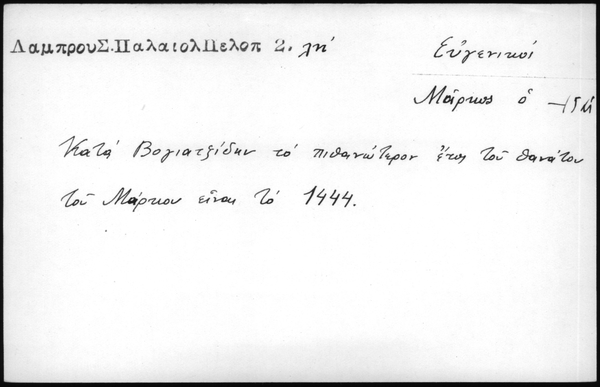 ΛαμπρουΣ.ΠαλαιολΠελοπ 2. λη'
Εὐγενικοί
Μάρκος ὁ
Κατά Βογιατζίδην τό πιθανώτερον ἔτος τοῦ θανάτου
τοῦ Μάρκου εἶναι τό 1444.